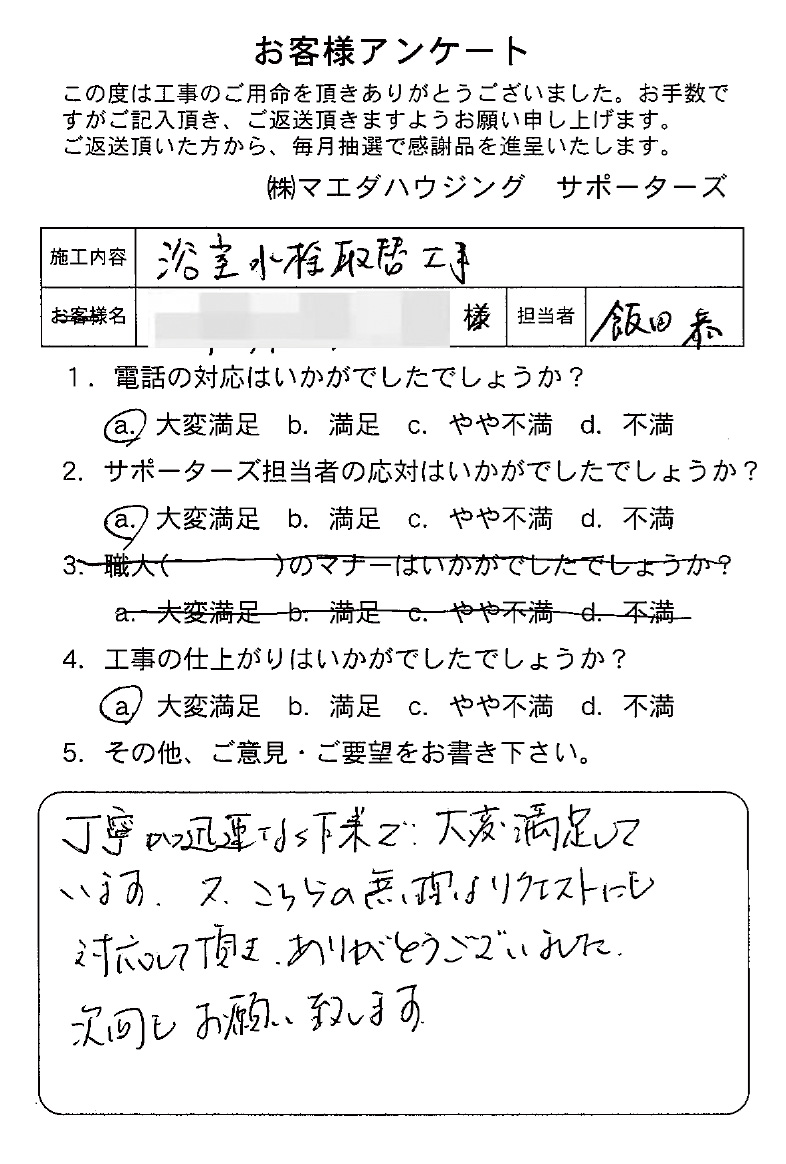 お客様アンケート
この度は工事のご用命を頂きありがとうございました。お手数で
すがご記入頂き、ご返送頂きますようお願い申し上げます。
ご返送頂いた方から、毎月抽選で感謝品を進呈いたします。
㈱マエダハウジング　サポーターズ
施工内容 浴室水栓取替工事
お客様名 様 担当者 飯田 恭
1．電話の対応はいかがでしたでしょうか？
a. 大変満足 b. 満足 c. やや不満 d. 不満
2．サポーターズ担当者の応対はいかがでしたでしょうか？
a. 大変満足 b. 満足 c. やや不満 d. 不満
3．職人( )のマナーはいかがでしたでしょうか？
a. 大変満足 b. 満足 c. やや不満 d. 不満
4．工事の仕上がりはいかがでしたでしょうか？
a. 大変満足 b. 満足 c. やや不満 d. 不満
5．その他、ご意見・ご要望をお書き下さい。
丁寧かつ迅速な作業で、大変満足して
います。又、こちらの無理なリクエストにも
対応して頂き、ありがとうございました。
次回もお願い致します。